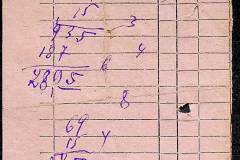 15
935 3
187 4
2805 6
1
8
69
15 4